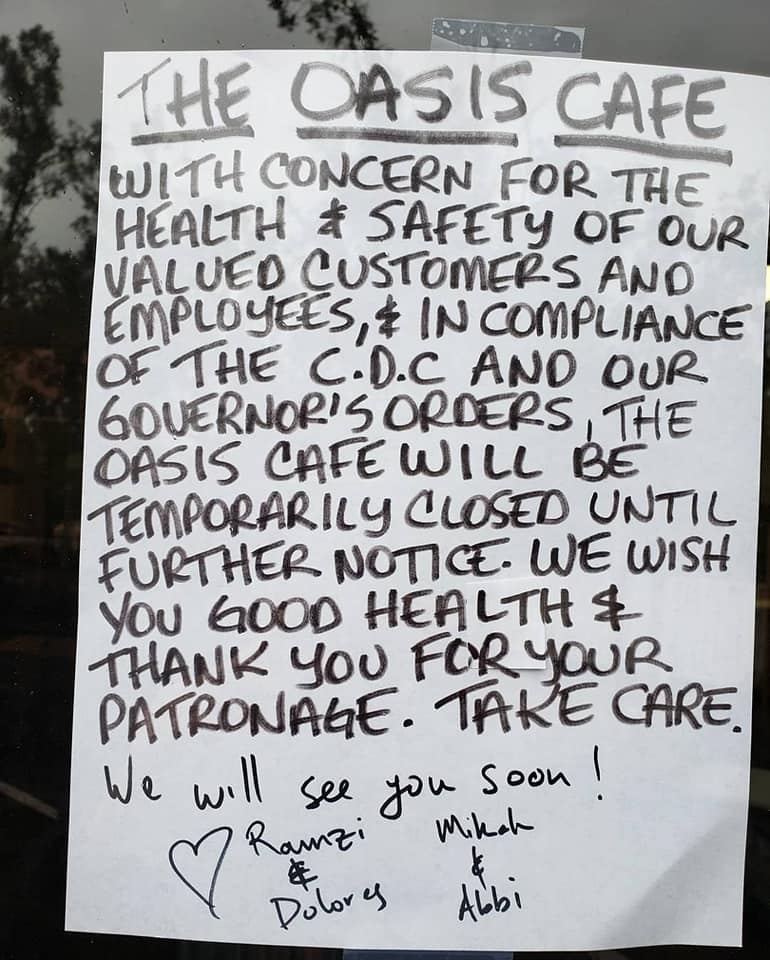 THE OASIS CAFE
WITH CONCERN FOR THE
HEALTH & SAFETY OF OUR
VALUED CUSTOMERS AND
EMPLOYEES, & IN COMPLIANCE
OF THE C.D.C AND OUR
GOVERNOR'S ORDERS, THE
OASIS CAFE WILL BE
TEMPORARILY CLOSED UNTIL
FURTHER NOTICE. WE WISH
YOU GOOD HEALTH &
THANK YOU FOR YOUR
PATRONAGE. TAKE CARE.
We will see you soon!
Ramzi
&
Dolores
Mikah
&
Abbi